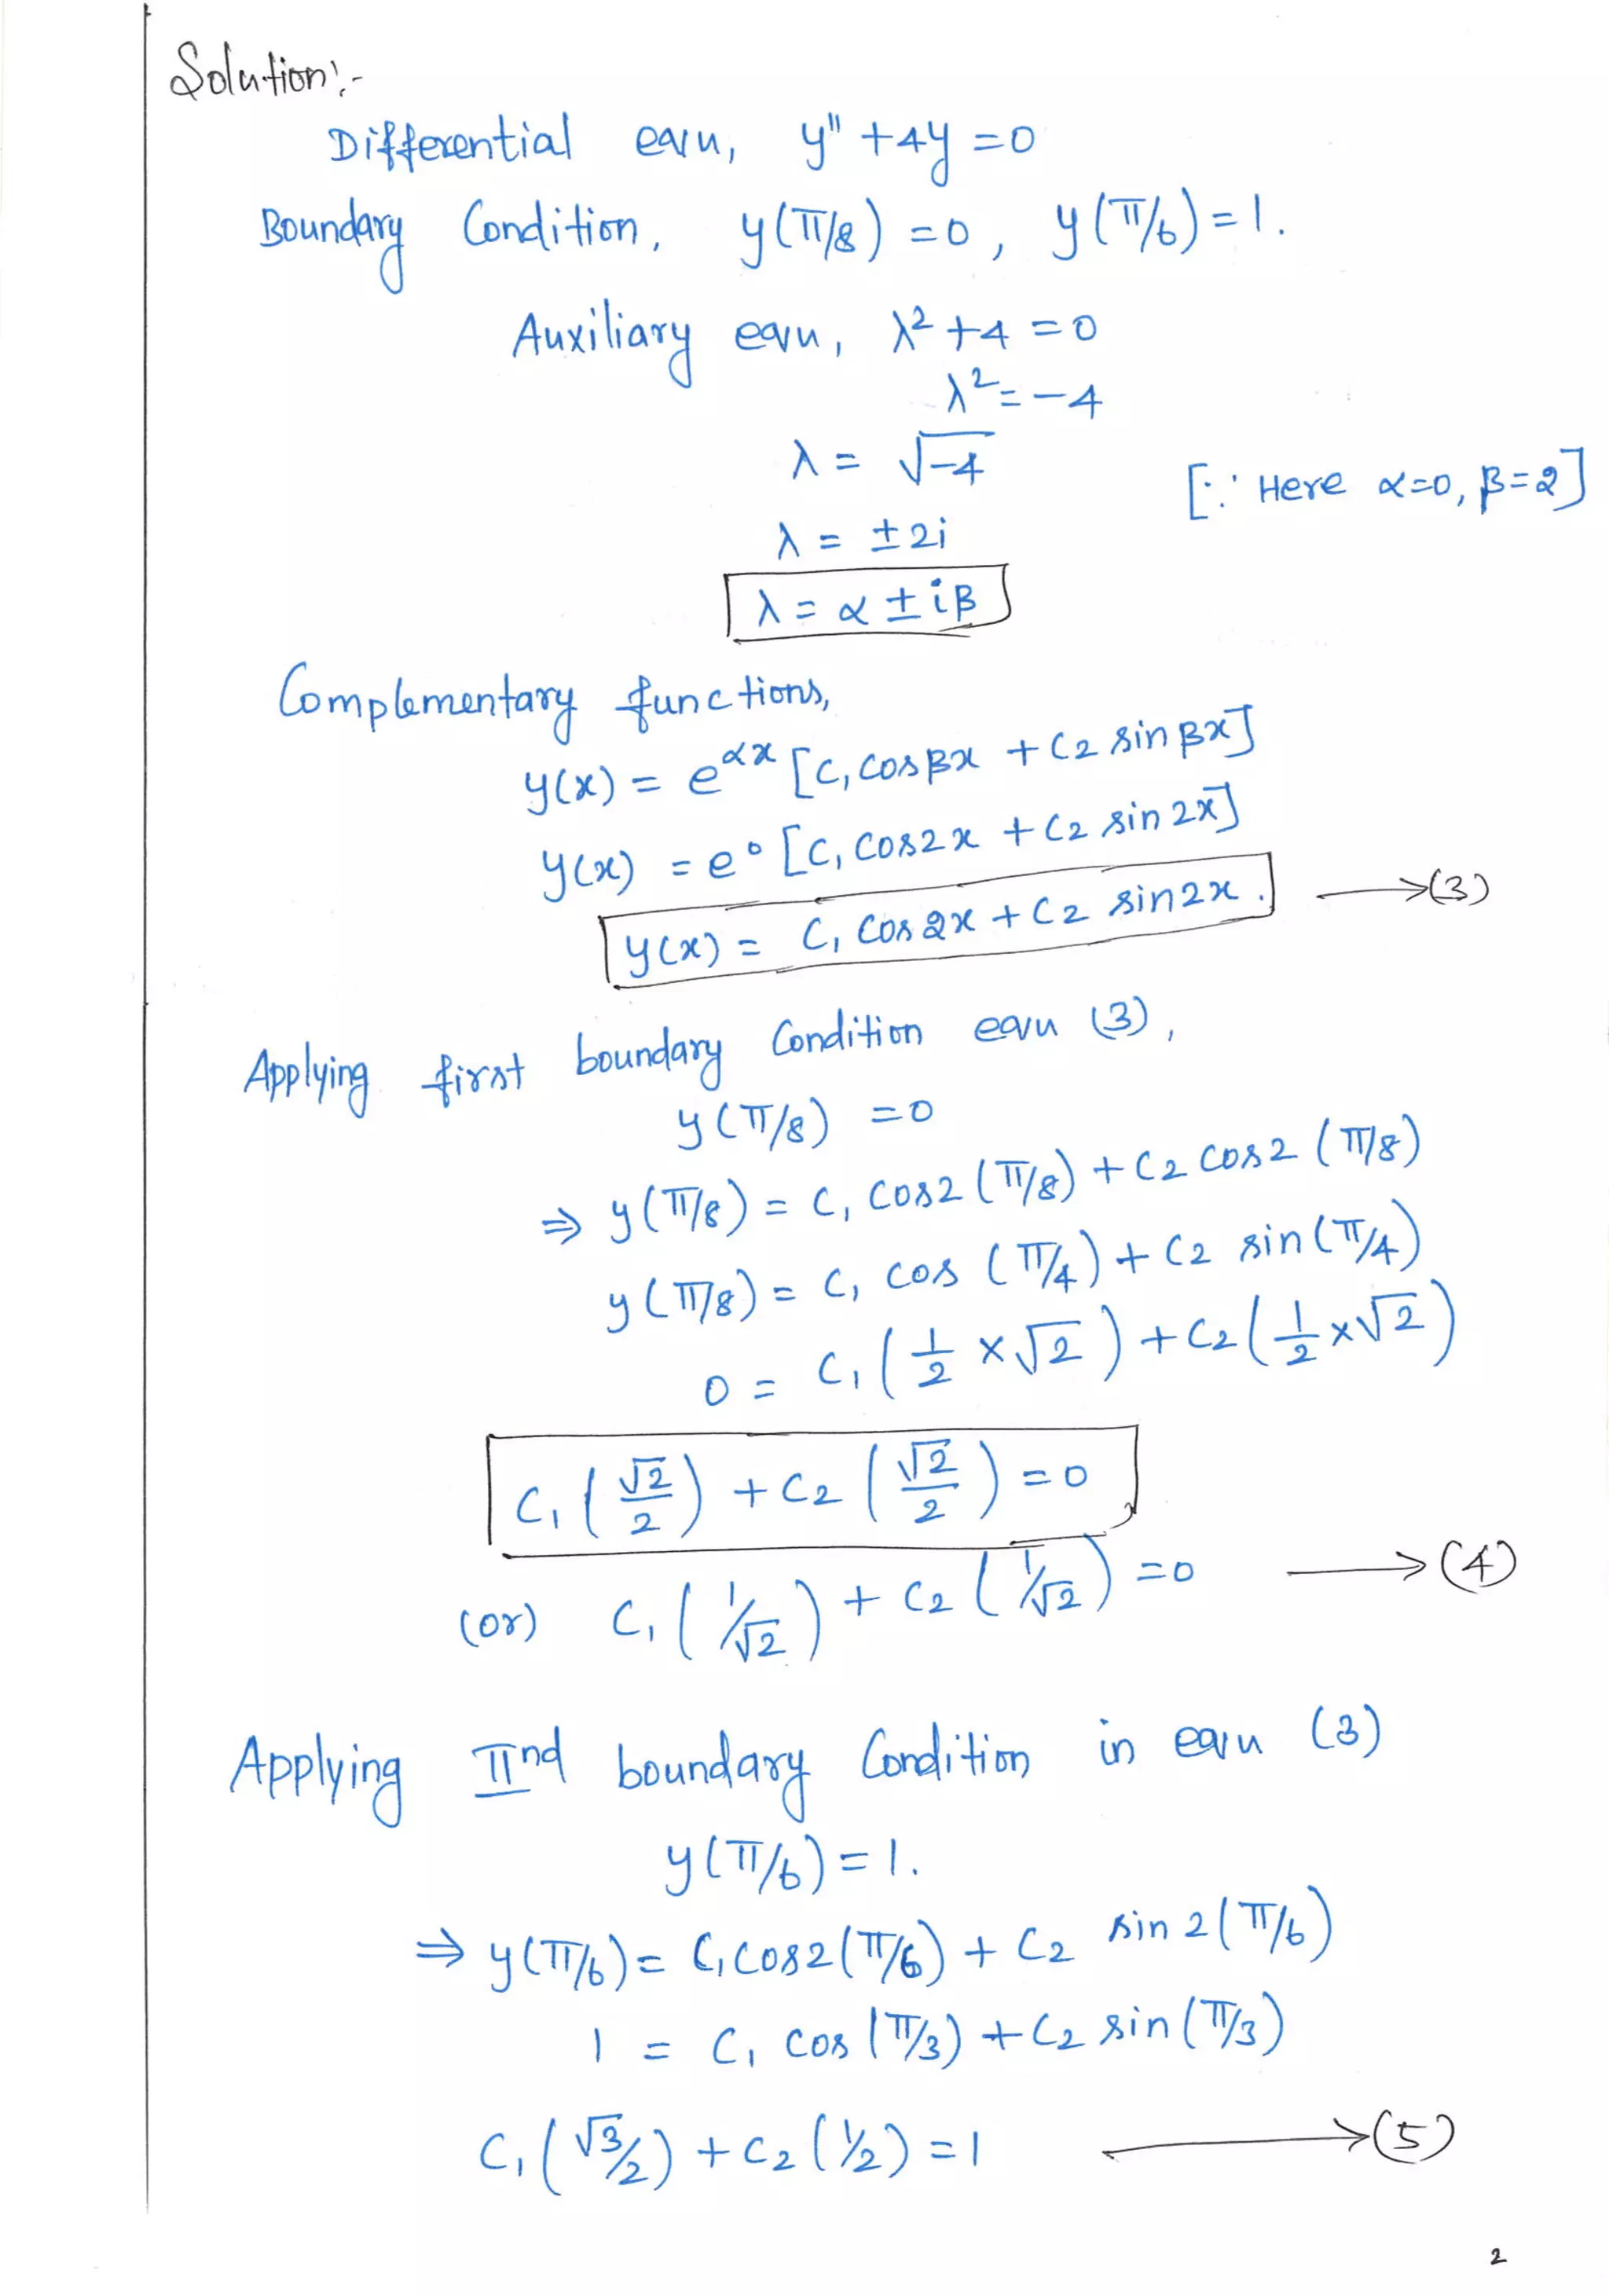 Solution:-
Differential eqn, y" +4y =0
Boundary Condition, y(π/8) =0, y(π/6) =1.
Auxiliary eqn, λ² +4 =0
λ² = -4
λ = √-4
[∵ Here α=0, β=2]
λ = ±2i
λ = α ± iβ
Complementary functions,
y(x) = e^αx [C₁ cosβx + C₂ sinβx]
y(x) = e⁰ [C₁ cos2x + C₂ sin 2x]
y(x) = C₁ cos2x + C₂ sin2x. →(3)
Applying first boundary Condition eqn (3),
y(π/8) =0
⇒ y(π/8) = C₁ cos2(π/8) + C₂ cos2(π/8)
y(π/8) = C₁ cos (π/4) + C₂ sin(π/4)
0 = C₁(1/2 ×√2) + C₂(1/2 ×√2)
C₁(√2/2) + C₂(√2/2) =0
(or) C₁(1/√2) + C₂(1/√2) =0 →(4)
Applying IInd boundary Condition in eqn (3)
y(π/6) =1.
⇒ y(π/6) = C₁cos2(π/6) + C₂ sin2(π/6)
1 = C₁ cos(π/3) + C₂ sin(π/3)
C₁(√3/2) + C₂(1/2) =1 →(5)
2